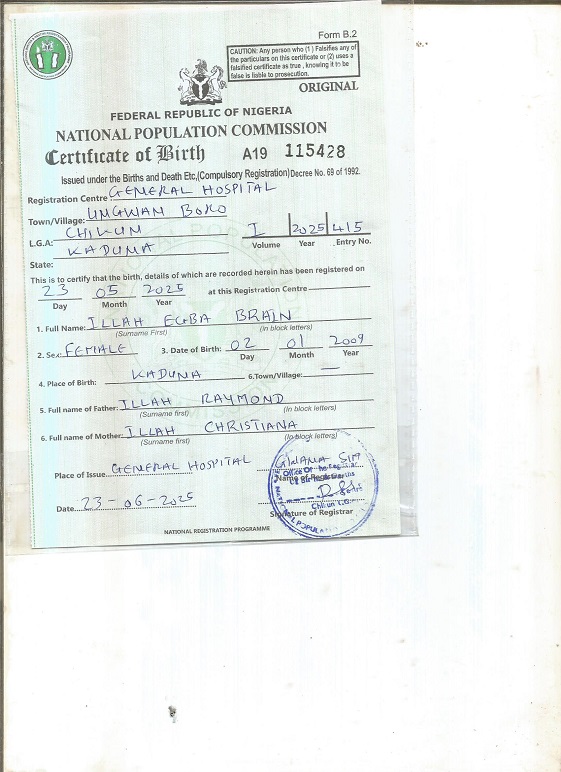 Form B.2
CAUTION: Any person who (1) Falsifies any of
the particulars on this certificate or (2) uses a
falsified certificate as true , knowing it to be
false is liable to prosecution.
ORIGINAL
FEDERAL REPUBLIC OF NIGERIA
NATIONAL POPULATION COMMISSION
Certificate of Birth A19 115428
Issued under the Births and Death Etc,(Compulsory Registration) Decree No. 69 of 1992.
Registration Centre: GENERAL HOSPITAL
Town/Village: UNGWAN BORO
L.G.A: CHIKUN I 2025 415
Volume Year Entry No.
State: KADUNA
This is to certify that the birth, details of which are recorded herein has been registered on
23 05 2025 at this Registration Centre
Day Month Year
1. Full Name: ILLAH EGBA BRAIN
(Surname First) (In block letters)
2. Sex: FEMALE 3. Date of Birth: 02 01 2009
Day Month Year
4. Place of Birth: KADUNA 6.Town/Village: —
5. Full name of Father: ILLAH RAYMOND
(Surname first) (In block letters)
6. Full name of Mother: ILLAH CHRISTIANA
(Surname first) (In block letters)
Place of Issue GENERAL HOSPITAL
Name of Registrar
Date 23-06-2025
Signature of Registrar
NATIONAL REGISTRATION PROGRAMME